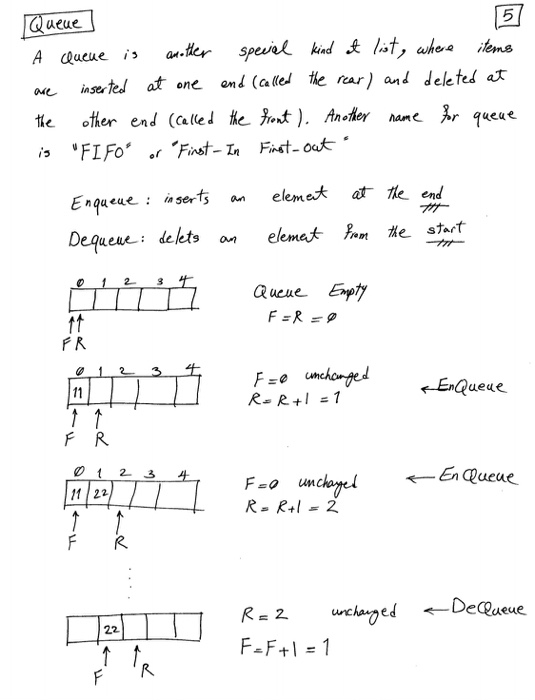 Queue
5
A Queue is another special kind of list, where items
are inserted at one end (called the rear) and deleted at
the other end (called the front). Another name for queue
is "FIFO" or "First-In First-out"
Enqueue: inserts an element at the end
Dequeue: delets an element from the start
0 1 2 3 4
Queue Empty
F = R = 0
F R
0 1 2 3 4
11
F = 0 unchanged
R = R + 1 = 1
← EnQueue
F R
0 1 2 3 4
11 22
F = 0 unchaged
R = R + 1 = 2
← EnQueue
F R
22
R = 2 unchanged ← DeQueue
F = F + 1 = 1
F R